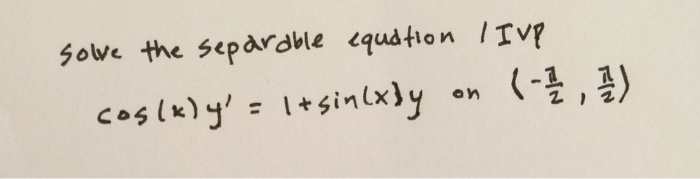 Solve the separable equation / IVP
cos(x)y' = 1+sin(x)y on (-π/2, π/2)